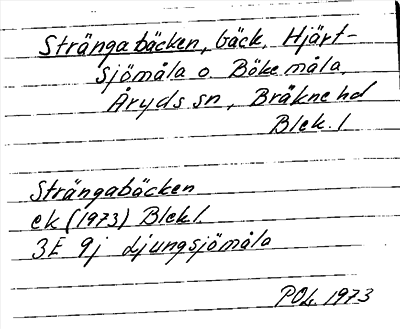 Strängabäcken, bäck, Hjärt-
sjömåla o. Bökemåla,
Åryds sn, Bräkne hd
Blek. l
Strängabäcken
ek (1973) Blek l.
3E 9j Ljungsjömåla
POL 1973